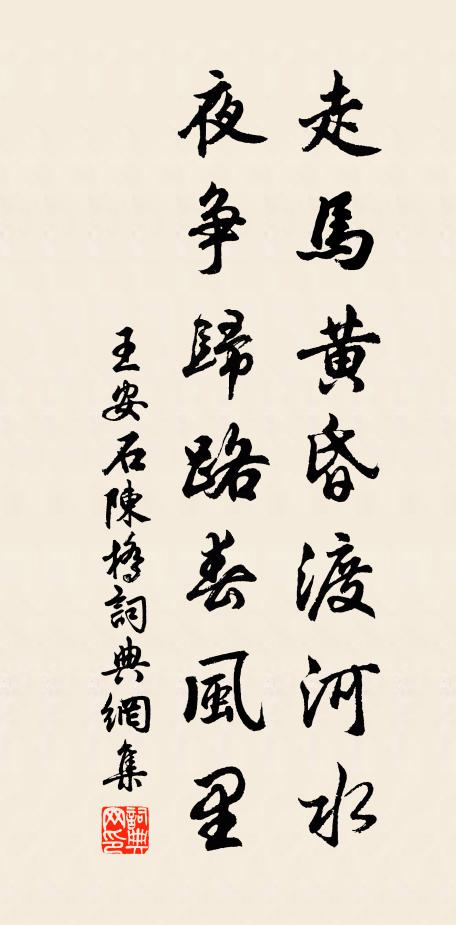 走馬黄昏渡河水
夜争歸路春風里
王安石陳橋詞典網集
詞典
网印